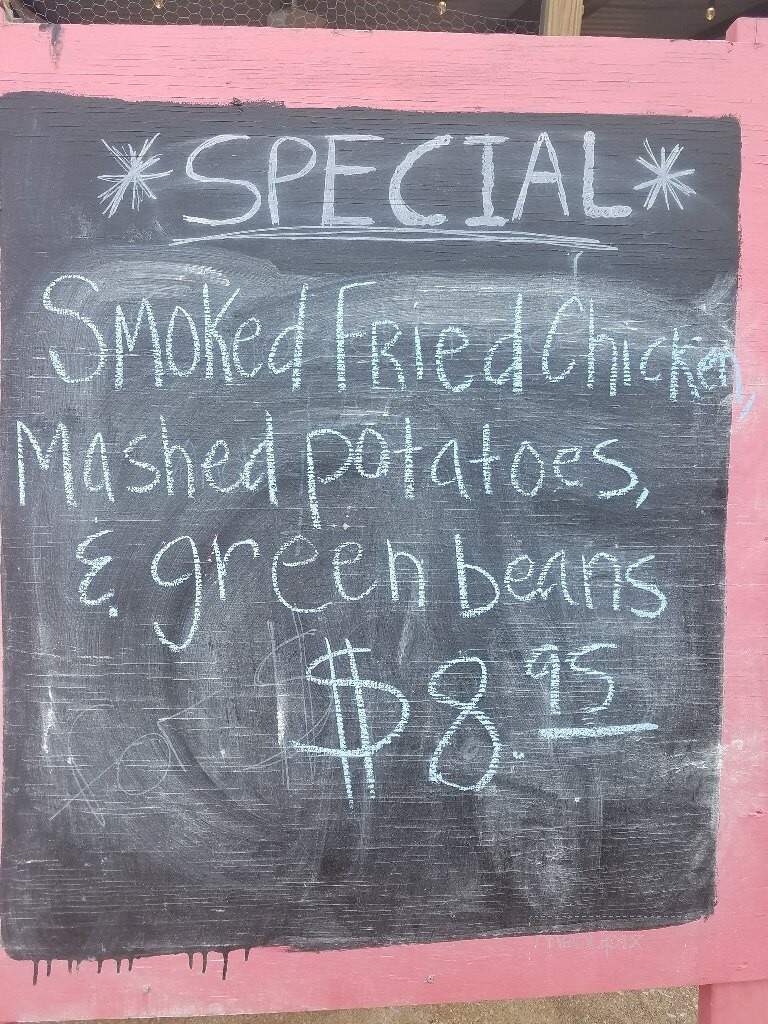 *SPECIAL*
Smoked Fried Chicken,
Mashed potatoes,
& green beans
$8.95